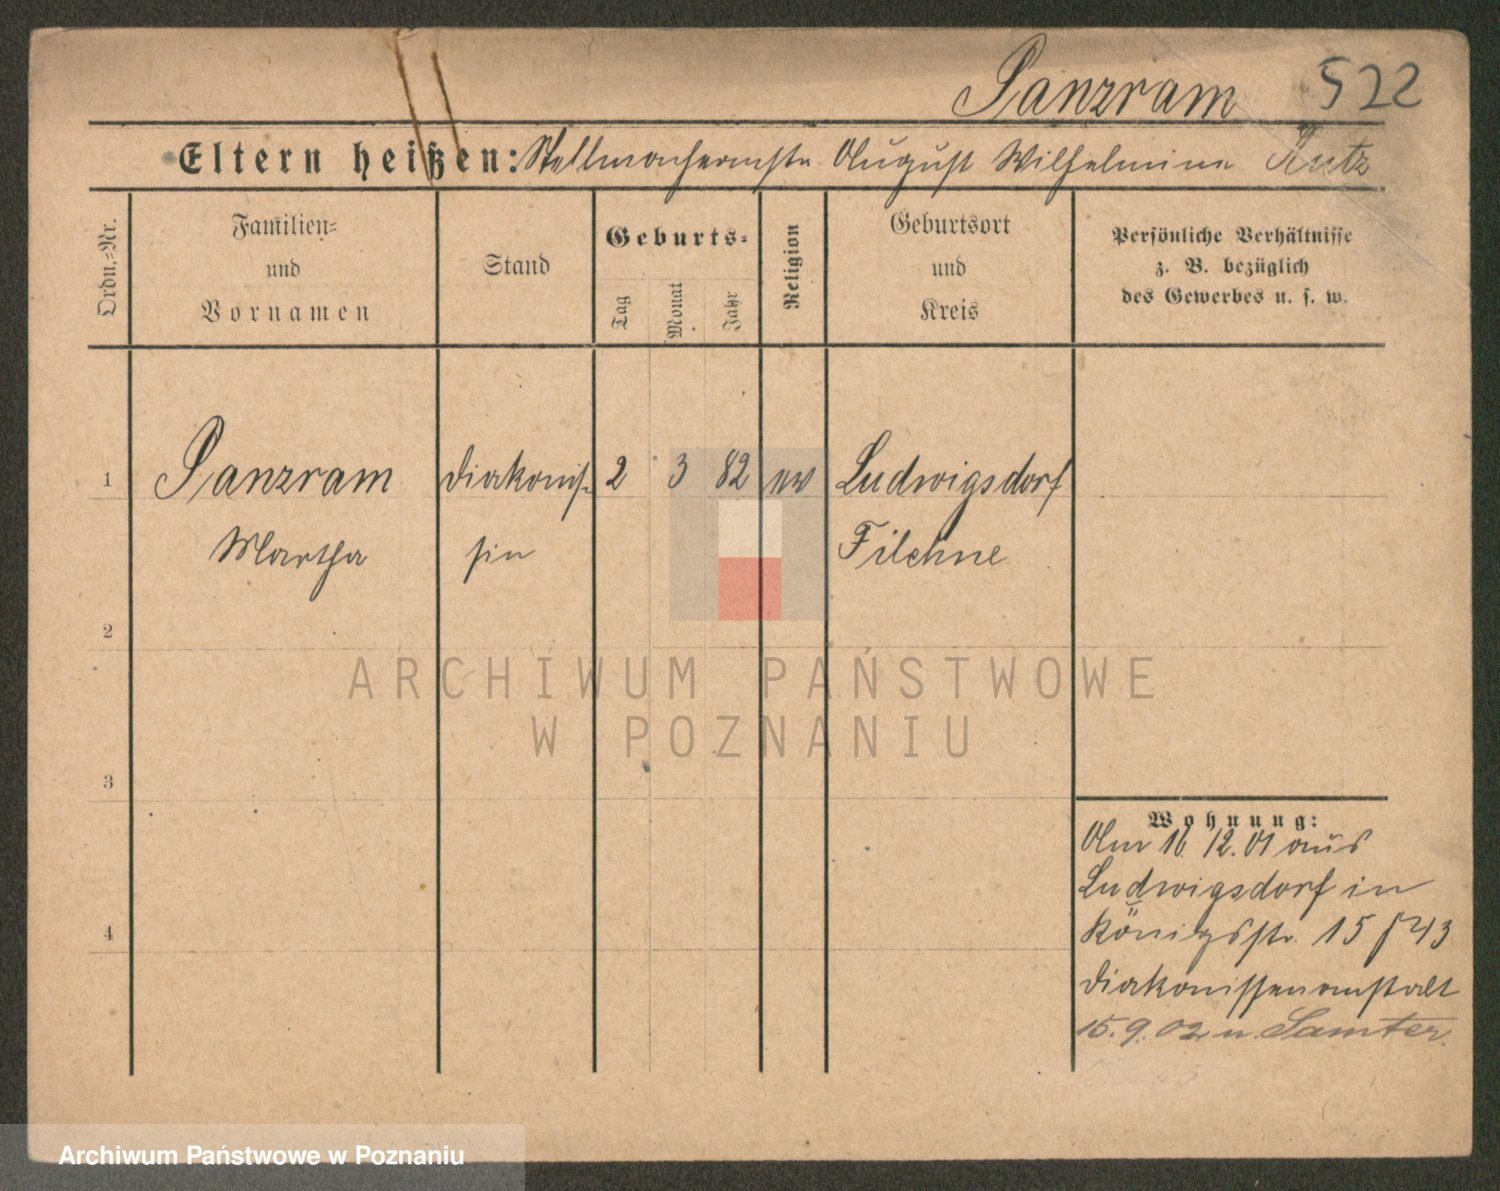 Panzram 522
Eltern heißen: Stellmachermstr. August Wilhelmine
Ordn.-Nr.
Familien-
und
Vornamen
Stand
Geburts-
Tag
Monat
Jahr
Religion
Geburtsort
und
Kreis
Persönliche Verhältnisse
z. B. bezüglich
des Gewerbes u. s. w.
1 Panzram Diakonis- 2 3 82 ev Ludwigsdorf
Martha sin Filehne
2
3
4
Wohnung:
Am 16 12.01 aus
Ludwigsdorf in
Königsstr. 15
Diakonissenanstalt
15.9.02 n. Samter.
ARCHIWUM PAŃSTWOWE
W POZNANIU
Archiwum Państwowe w Poznaniu